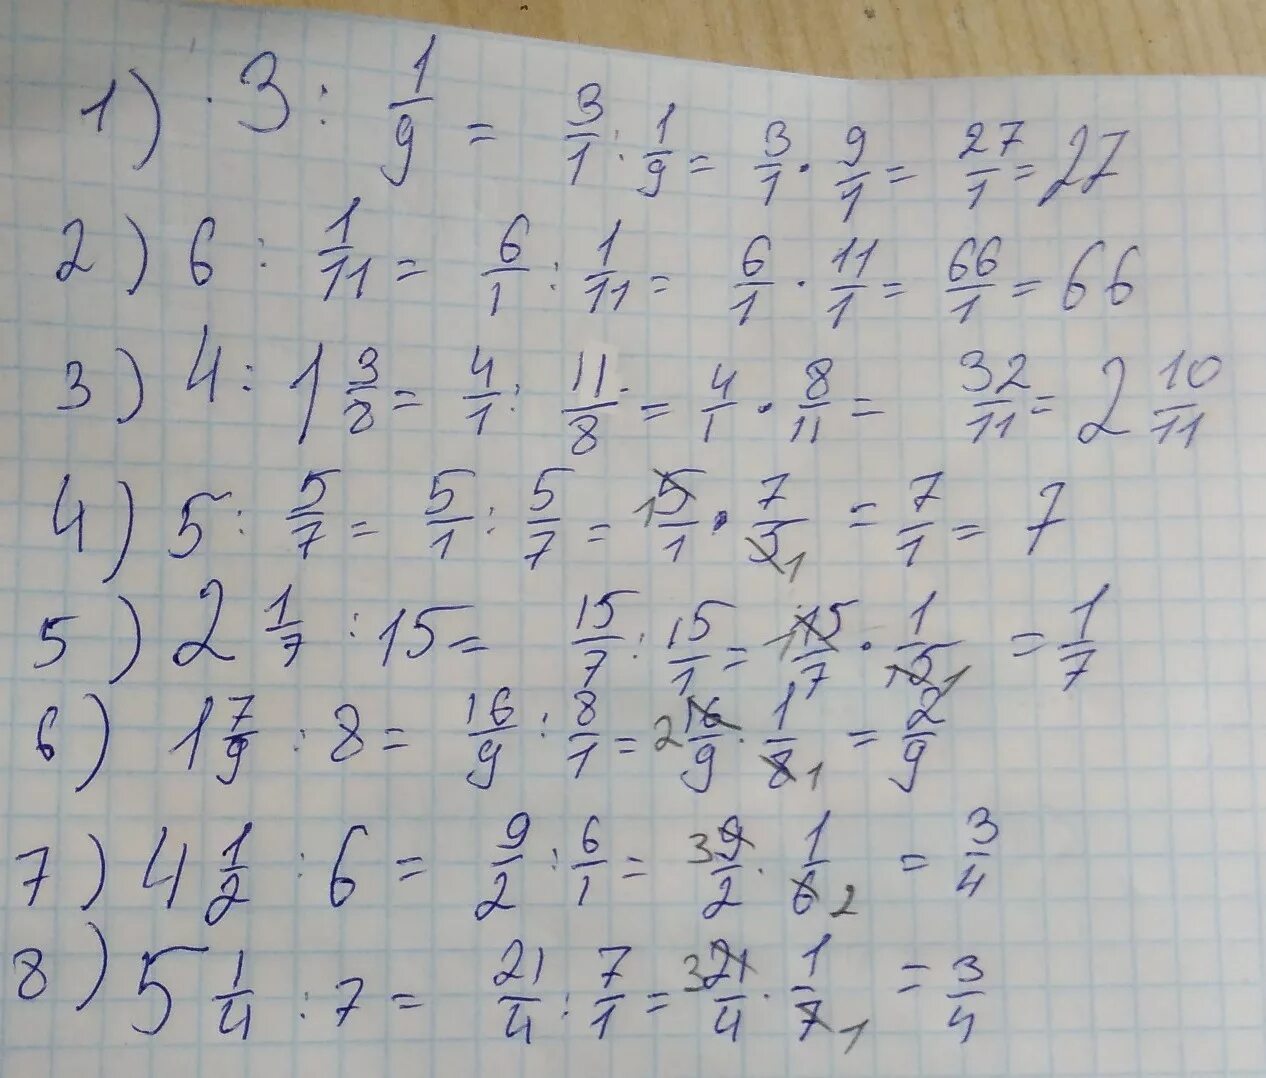 1) 3 : 1/9 = 3/1 : 1/9 = 3/1 · 9/1 = 27/1 = 27
2) 6 : 1/11 = 6/1 : 1/11 = 6/1 · 11/1 = 66/1 = 66
3) 4 : 1 3/8 = 4/1 : 11/8 = 4/1 · 8/11 = 32/11 = 2 10/11
4) 5 : 5/7 = 5/1 : 5/7 = 1 5/1 · 7/5 1 = 7/1 = 7
5) 2 1/7 : 15 = 15/7 : 15/1 = 1 15/7 · 1/15 1 = 1/7
6) 1 7/9 : 8 = 16/9 : 8/1 = 2 16/9 · 1/8 1 = 2/9
7) 4 1/2 : 6 = 9/2 : 6/1 = 3 9/2 · 1/6 2 = 3/4
8) 5 1/4 : 7 = 21/4 : 7/1 = 3 21/4 · 1/7 1 = 3/4